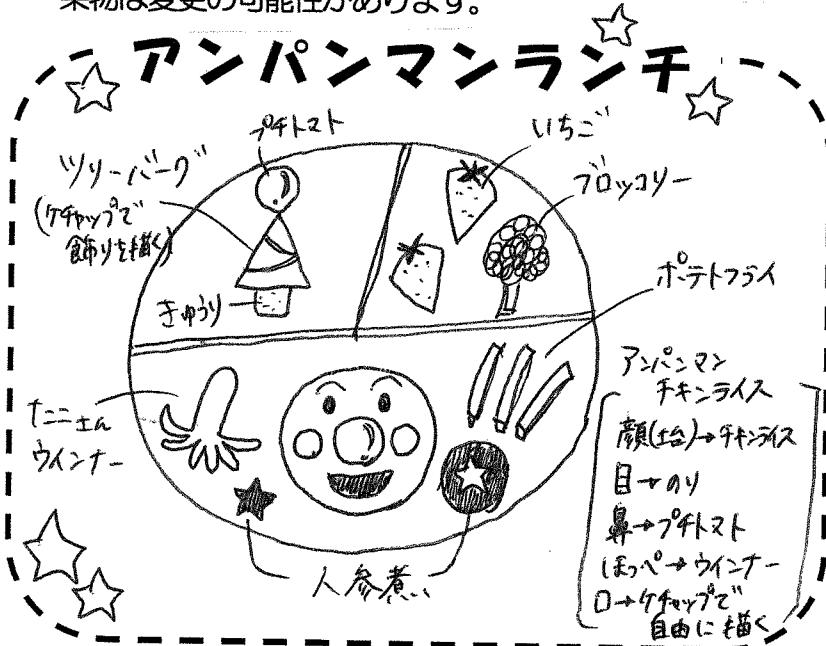 果物は変更の可能性があります。
アンパンマンランチ
プチトマト
いちご
ツリーバーグ
(ケチャップで
飾りを描く)
ブロッコリー
きゅうり
ポテトフライ
たこさん
ウインナー
アンパンマン
チキンライス
顔(土台)→チキンライス
目→のり
鼻→プチトマト
ほっぺ→ウインナー
口→ケチャップで
自由に描く
人参煮